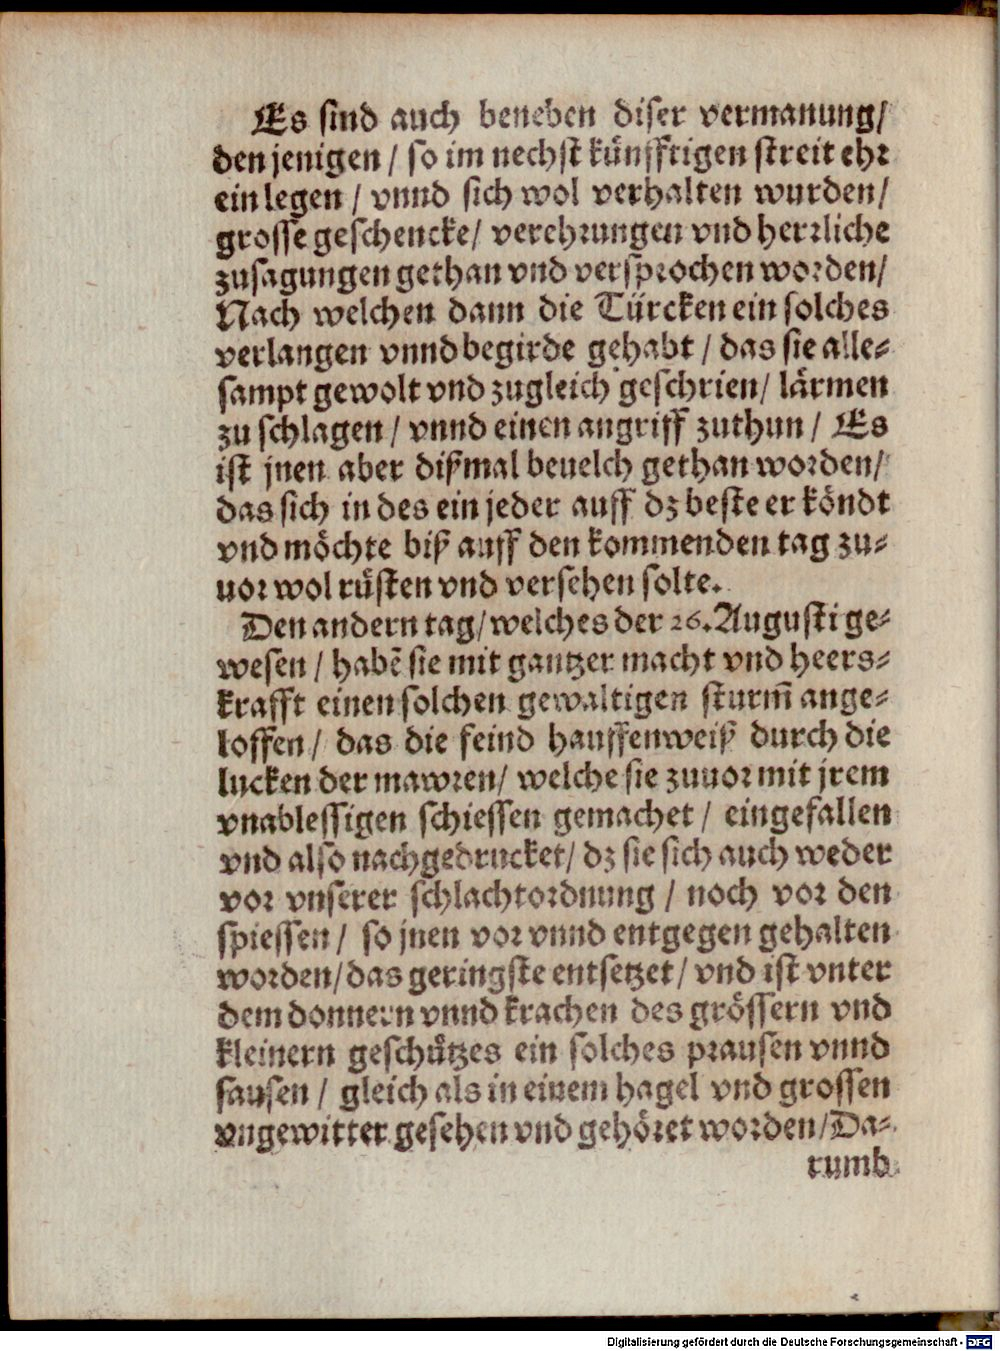 Es sind auch beneben diser vermanung/
den jenigen / so im nechst künfftigen streit ehr
ein legen / vnnd sich wol verhalten wurden/
grosse geschencke/ verehrungen vnd herrliche
zusagungen gethan vnd versprochen worden/
Nach welchen dann die Türcken ein solches
verlangen vnnd begirde gehabt / das sie alle-
sampt gewolt vnd zugleich geschrien/ lärmen
zu schlagen / vnnd einen angriff zuthun / Es
ist jnen aber dißmal beuelch gethan worden/
das sich in des ein jeder auff dz beste er köndt
vnd möchte biß auff den kommenden tag zu-
uor wol rüsten vnd versehen solte.
Den andern tag/welches der 26. Augusti ge-
wesen / habē sie mit gantzer macht vnd heers-
krafft einen solchen gewaltigen sturm̄ ange-
loffen/ das die feind hauffenweiß durch die
lucken der mawren/ welche sie zuuor mit jrem
vnablessigen schiessen gemachet / eingefallen
vnd also nachgedrucket/ dz sie sich auch weder
vor vnserer schlachtordnung / noch vor den
spiessen / so jnen vor vnnd entgegen gehalten
worden/das geringste entsetzet/ vnd ist vnter
dem donnern vnnd krachen des grössern vnd
kleinern geschützes ein solches prausen vnnd
sausen / gleich als in einem hagel vnd grossen
vngewitter gesehen vnd gehöret worden/Da-
rumb
Digitalisierung gefördert durch die Deutsche Forschungsgemeinschaft - DFG